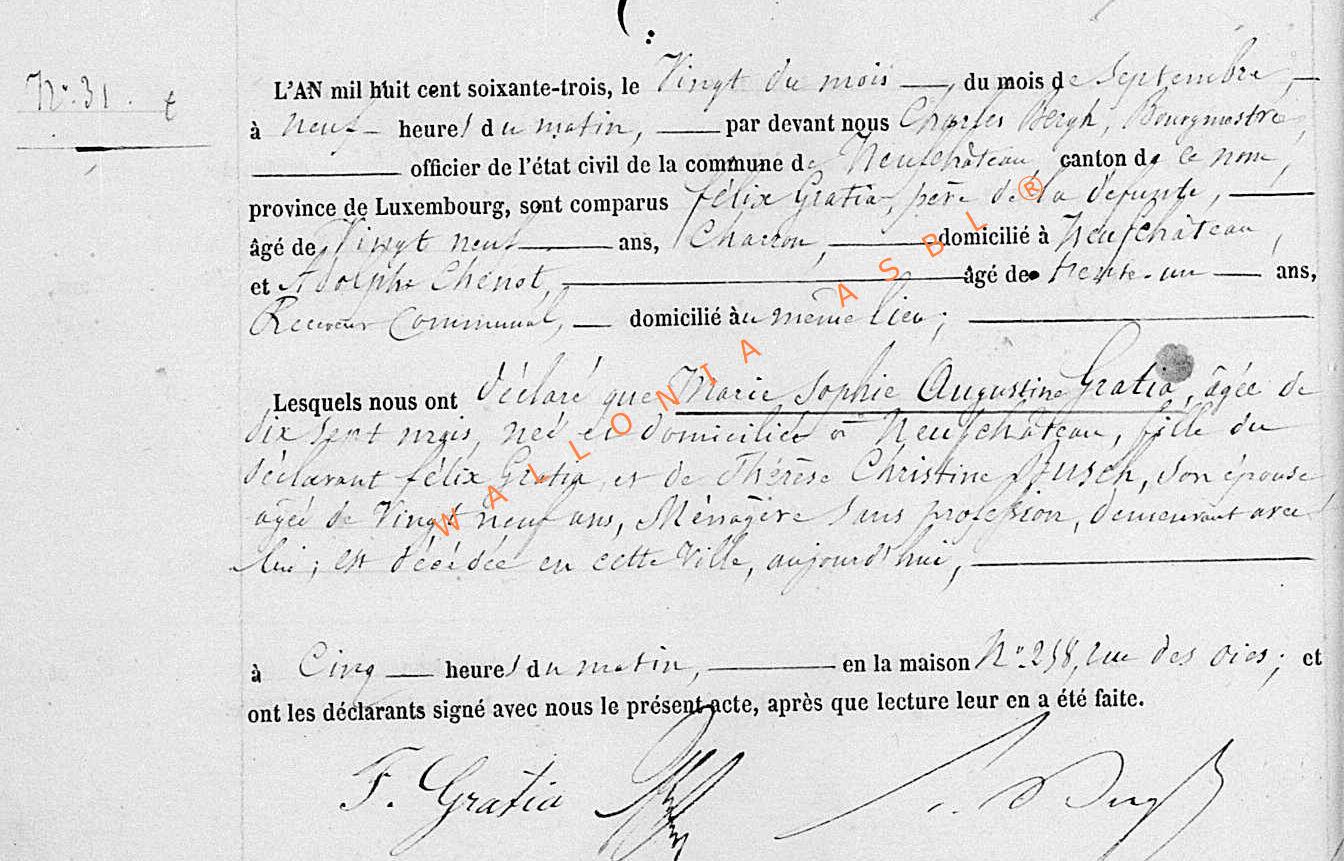 N° 31.
L'AN mil huit cent soixante-trois, le Vingt du mois du mois de Septembre,
à neuf heures du matin, par devant nous Charles Bergh, Bourgmestre,
officier de l'état civil de la commune de Neufchâteau canton de ce nom,
province de Luxembourg, sont comparus félix Gratia, père de la défunte,
âgé de Vingt neuf ans, Charron, domicilié à Neufchâteau,
et Adolphe Chenot, âgé de trente-un ans,
Receveur Communal, domicilié au même lieu;
Lesquels nous ont déclaré que Marie Sophie Augustine Gratia, âgée de
dix sept mois, née et domiciliée à Neufchâteau, fille du
déclarant félix Gratia, et de Thérèse Christine, son épouse
âgée de Vingt neuf ans, Ménagère sans profession, demeurant avec
lui; est décédée en cette Ville, aujourd'hui,
à Cinq heures du matin, en la maison N° 258, rue des oies; et
ont les déclarants signé avec nous le présent acte, après que lecture leur en a été faite.
F. Gratia
WALLONIA ASBL ®